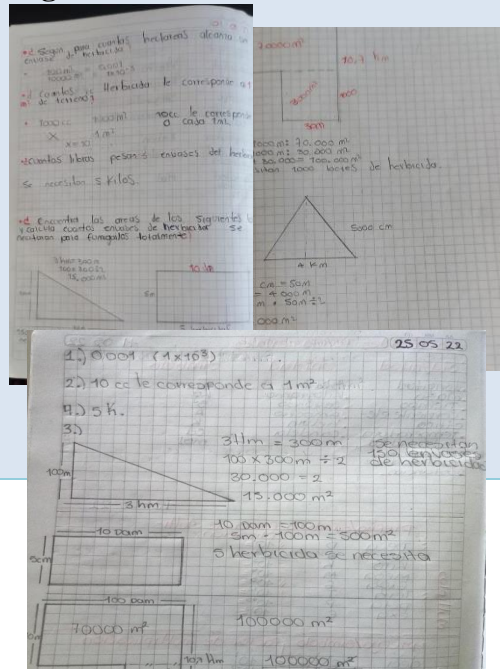 •¿ Segun para cuantas hectareas alcanza un
envase de herbicida
100 m² = 0,001
10000 m² 1x10-3
•¿ Cuantos cc Herbicida le corresponde a 1
m² de terreno?
1000 cc
X 1 m²
x = 10
10cc le corresponde
a cada 1m²
•¿Cuantos libras pesan 5 envases del herbi
Se necesitan 5 kilos.
•¿ Encuentra las areas de los siguientes
y calcula cuantos envases de herbicida se
para fumigarlos totalmente?
3 hm = 300 m
15.000 m²
10 dam
70000 m²
10,7 hm
30000 m²
1000 m: 70.000 m²
1000 m: 30.000 m²
30.000 = 100.000 m²
1000 botes de herbicida.
5000 cm
4 Km
cm = 50 m
= 4000 m
m • 50 m ÷ 2
000 m²
25 05 22
1.) 0.001 (1x10³)
2.) 10 cc le corresponde a 1 m²
4.) 5 K.
3.)
100m
3 hm
3 Hm = 300m
100 x 300m ÷ 2
30.000 = 2
15.000 m²
Se necesitan
150 envases
de herbicidas
10 Dam
5cm
10 Dam = 100m
5m • 100m = 500m²
5 herbicida se necesita
100 Dam
70000 m²
100000 m²
10,7 Hm
100000 m²